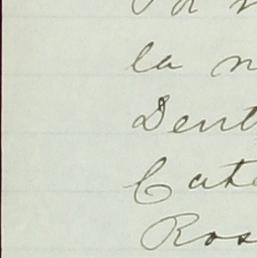 la n
Dent
Cate
Ros